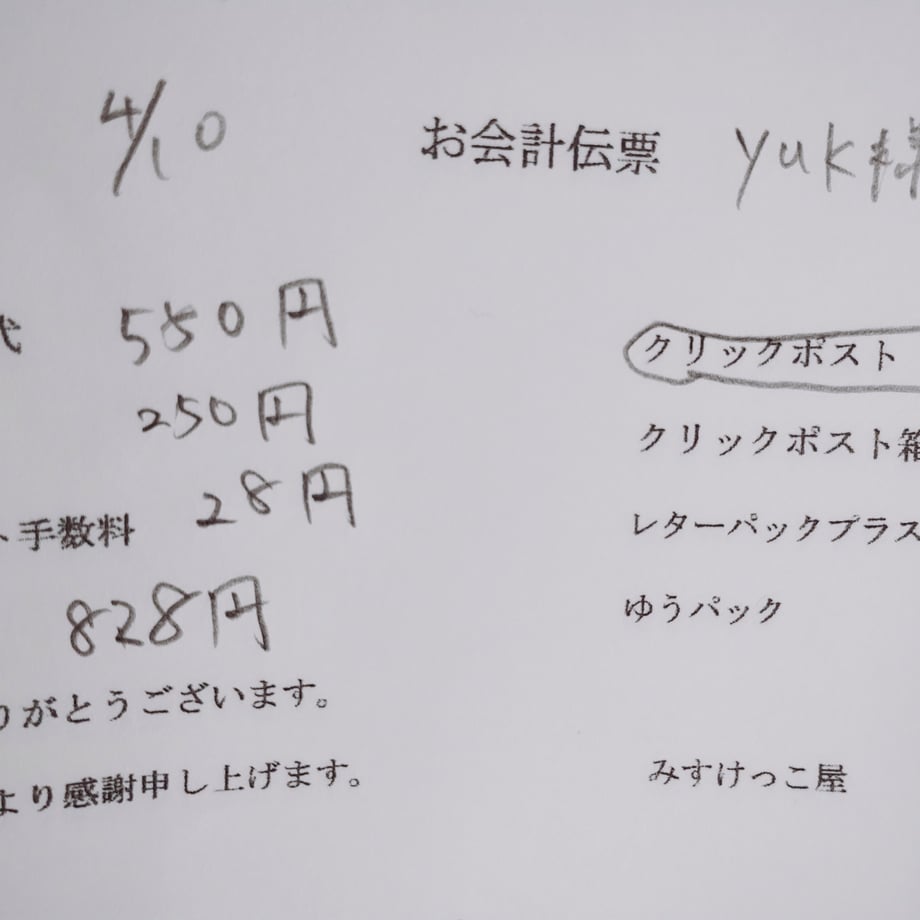 4/10 お会計伝票 yuk様
代 550円 クリックポスト
250円 クリックポスト箱
ト手数料 28円 レターパックプラス
828円 ゆうパック
りがとうございます。
より感謝申し上げます。 みすけっこ屋